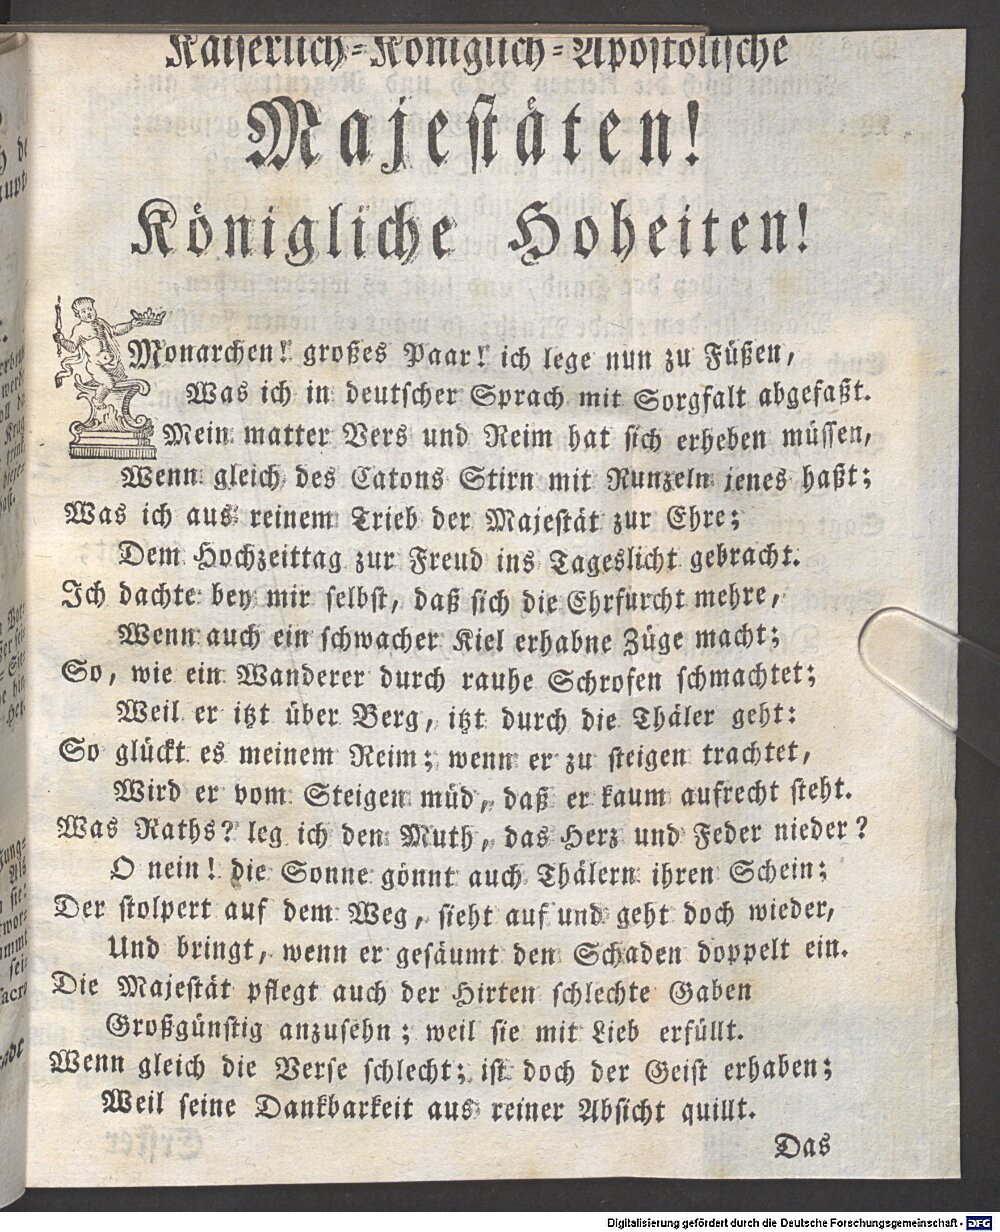 Kaiserlich-Königlich-Apostolische
Majestäten!
Königliche Hoheiten!
Monarchen! großes Paar! ich lege nun zu Füßen,
Was ich in deutscher Sprach mit Sorgfalt abgefaßt.
Mein matter Vers und Reim hat sich erheben müssen,
Wenn gleich des Catons Stirn mit Runzeln jenes haßt;
Was ich aus reinem Trieb der Majestät zur Ehre;
Dem Hochzeittag zur Freud ins Tageslicht gebracht.
Ich dachte bey mir selbst, daß sich die Ehrfurcht mehre,
Wenn auch ein schwacher Kiel erhabne Züge macht;
So, wie ein Wanderer durch rauhe Schrofen schmachtet;
Weil er itzt über Berg, itzt durch die Thäler geht:
So glückt es meinem Reim; wenn er zu steigen trachtet,
Wird er vom Steigen müd, daß er kaum aufrecht steht.
Was Raths? leg ich den Muth, das Herz und Feder nieder?
O nein! die Sonne gönnt auch Thälern ihren Schein;
Der stolpert auf dem Weg, sieht auf und geht doch wieder,
Und bringt, wenn er gesäumt den Schaden doppelt ein.
Die Majestät pflegt auch der Hirten schlechte Gaben
Großgünstig anzusehn; weil sie mit Lieb erfüllt.
Wenn gleich die Verse schlecht; ist doch der Geist erhaben;
Weil seine Dankbarkeit aus reiner Absicht quillt.
Das
Digitalisierung gefördert durch die Deutsche Forschungsgemeinschaft - DFG